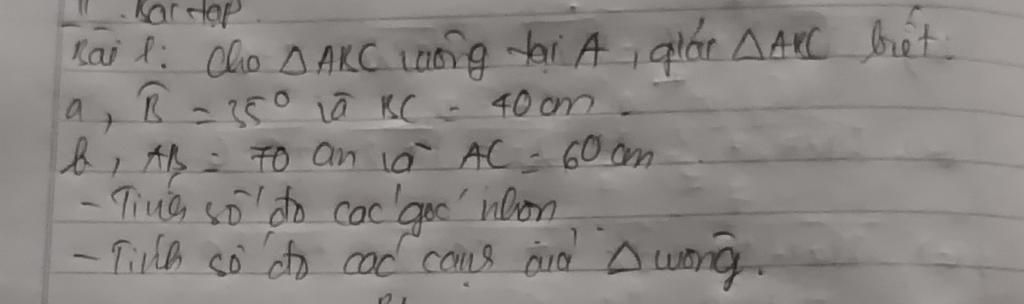 II. Bài tập
Bài 1: Cho △ABC vuông tại A, giải △ABC biết:
a, B̂ = 35° và BC = 40 cm.
b, AB = 70 cm và AC = 60 cm
- Tính số đo các góc nhọn
- Tính số đo các cạnh của △ vuông.